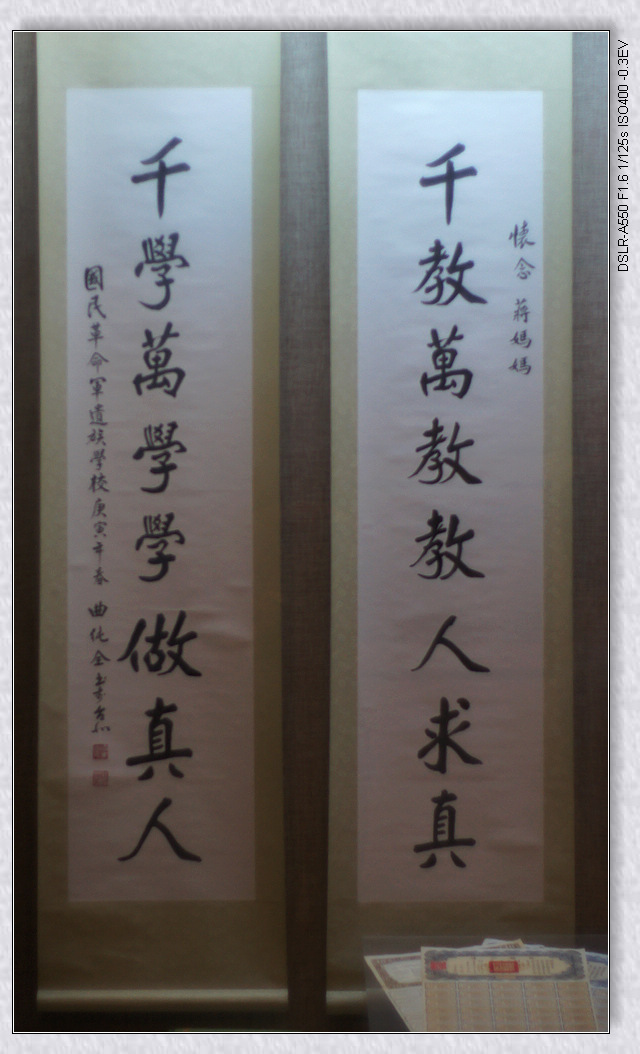 懷念蔣媽媽
千教萬教教人求真
千學萬學學做真人
國民革命軍遺族學校庚寅年春
曲化全書
DSLR-A550 F1.6 1/125s ISO400 -0.3EV